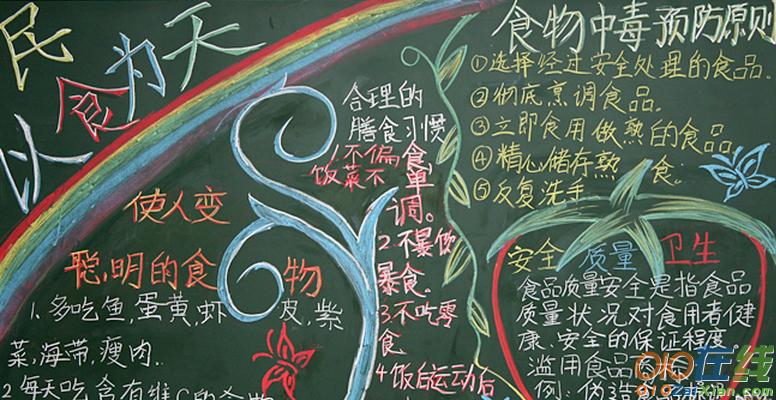 民以食为天
使人变
聪明的食物
1、多吃鱼,蛋黄,虾皮,紫
菜,海带,瘦肉.
2 每天吃含有维C的食物
合理的
膳食习惯
1.不偏食
饭菜不单
调。
2.不暴饮
暴食。
3.不吃零
食
4.饭后运动后
食物中毒预防原则
①选择经过安全处理的食品。
②彻底烹调食品。
③立即食用做熟的食品。
④精心储存熟食。
⑤反复洗手
安全 质量 卫生
食品质量安全是指食品
质量状况对食用者健
康、安全的保证程度。
滥用食品
例:伪造
在线